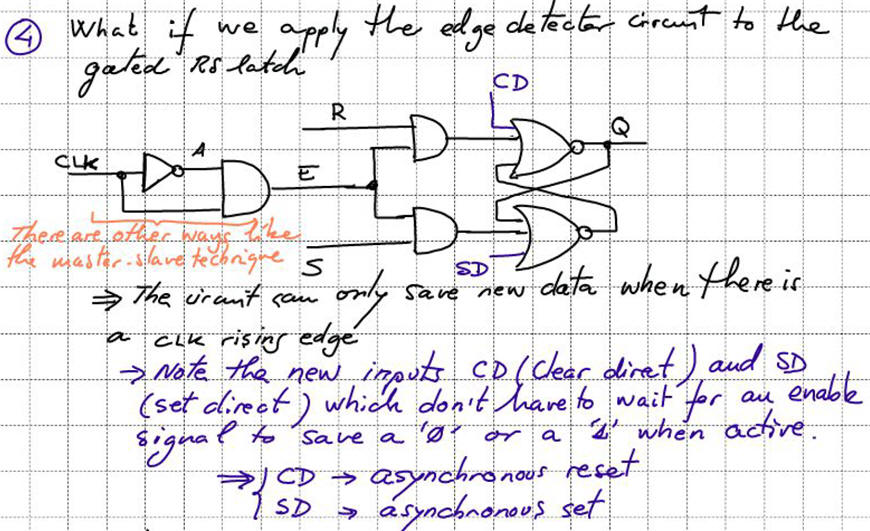 ④ What if we apply the edge detector circuit to the
gated RS latch
CD
R
Q
CLK
A
E
There are other ways like
the master-slave technique
S
SD
⇒ The circuit can only save new data when there is
a CLK rising edge
→ Note the new inputs CD (clear diret) and SD
(set direct) which don't have to wait for an enable
signal to save a '0' or a '1' when active.
⇒ { CD → asynchronous reset
SD → asynchronous set